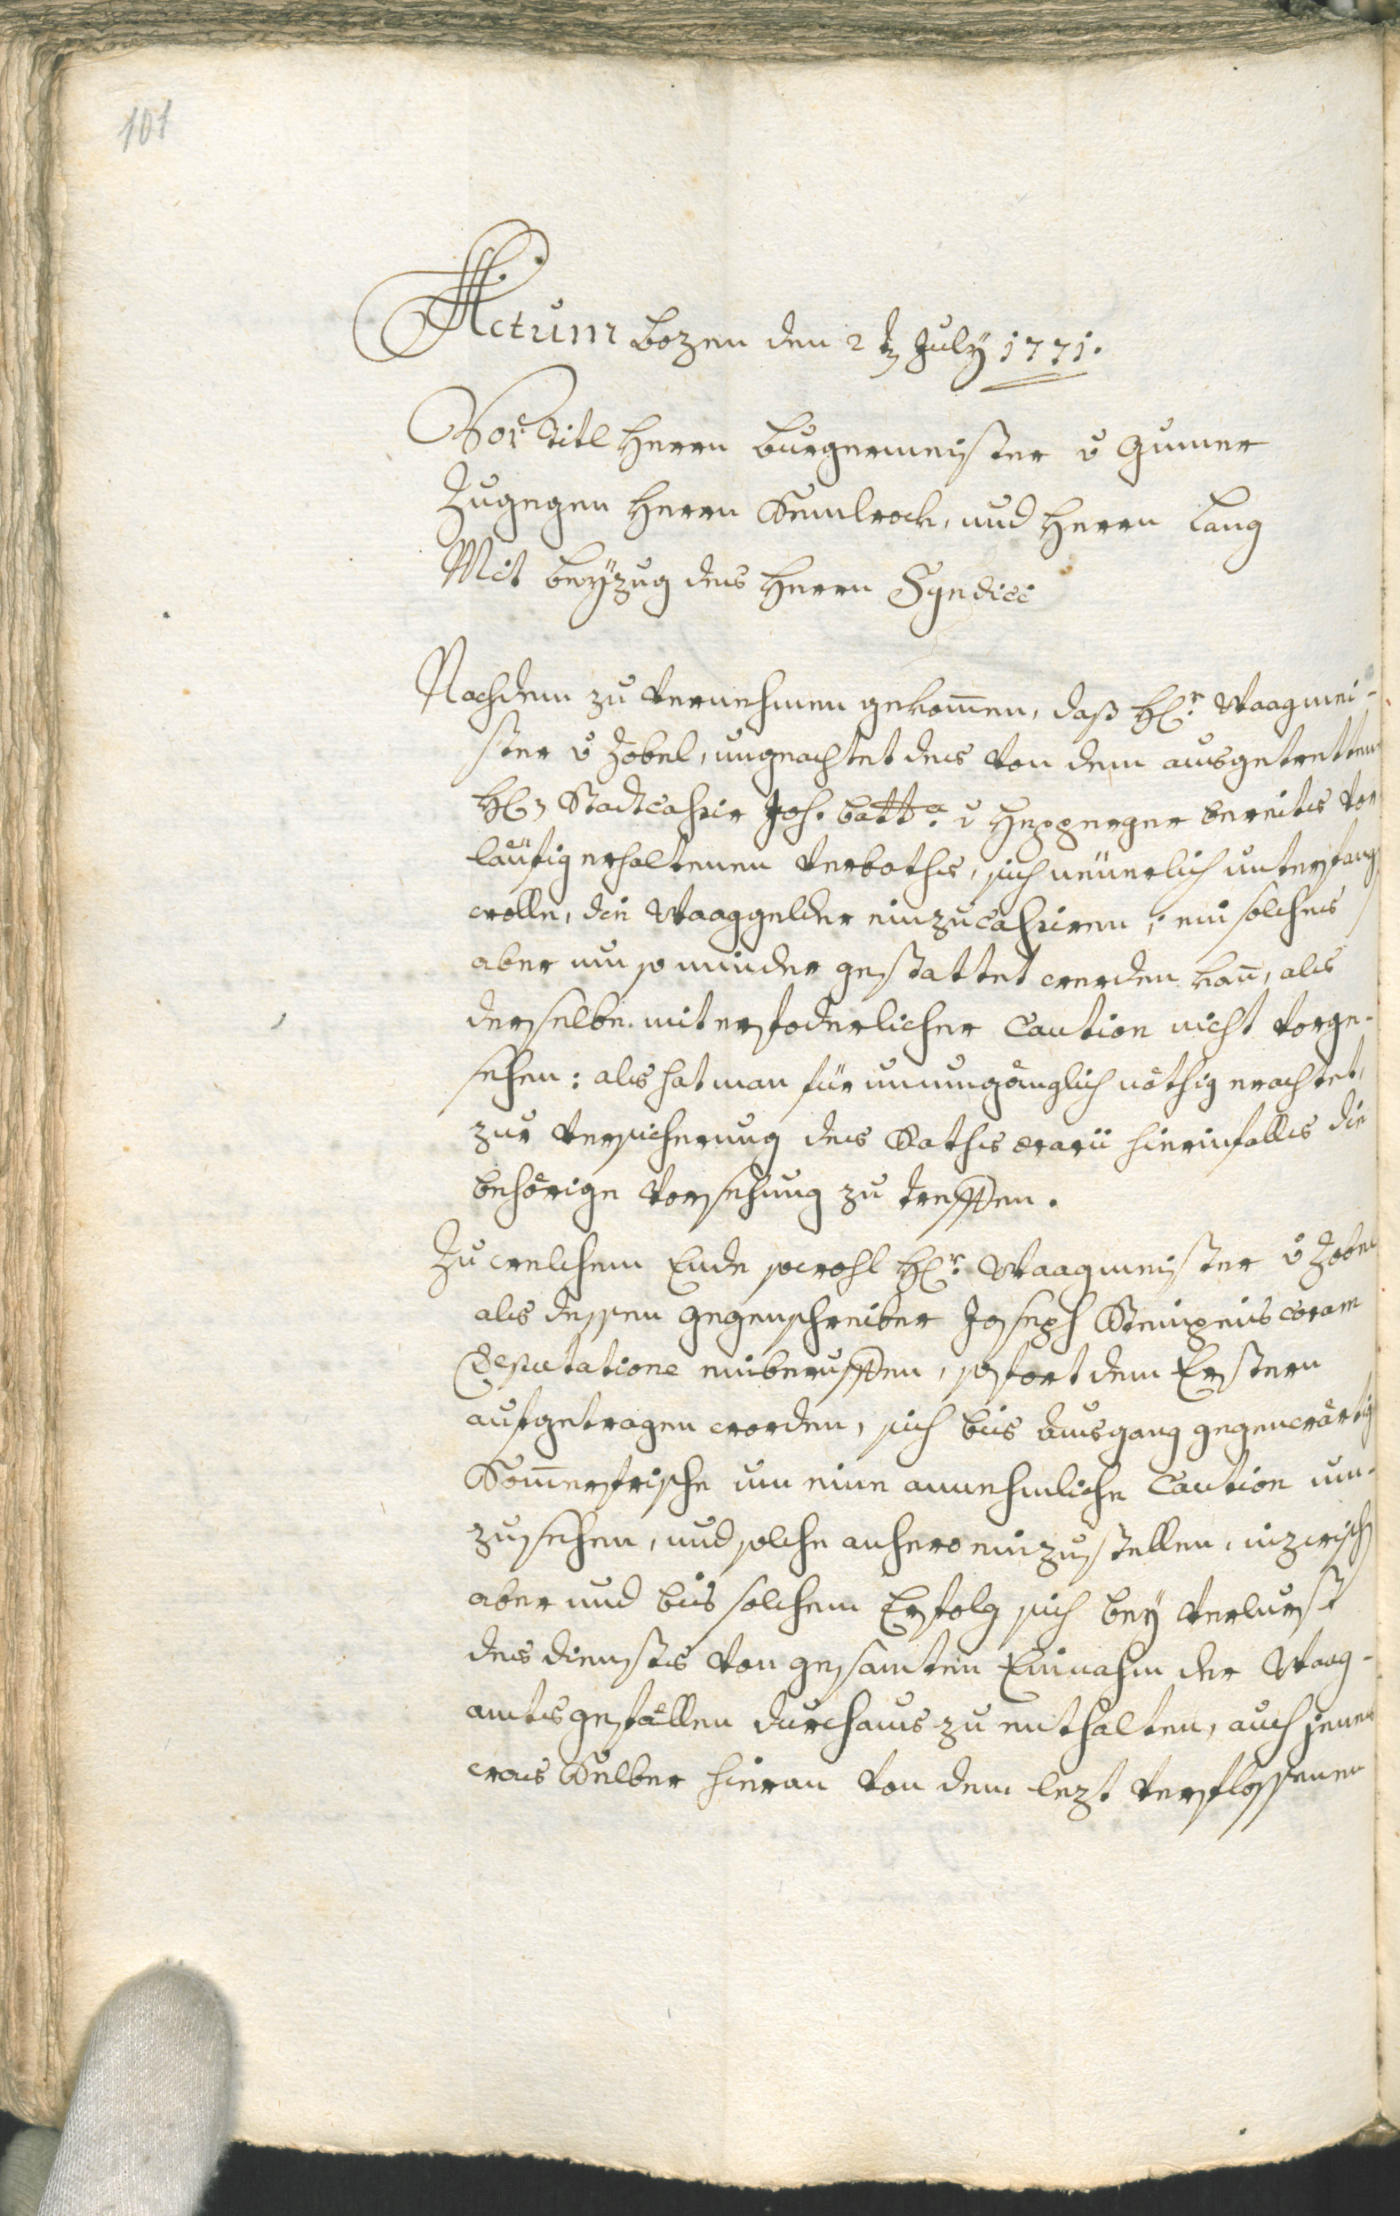 101
Actum Bozen den 2t July 1771.
Vor Titl Herrn Burgermeister v Gumer
Zugegen Herrn Kemlrock, und Herrn Lang
Mit beyzug des Herrn Syndici
Nachdem zu Vernehmen gekom̄en, daß H: Waagmei-
ster v Zobel, ungeachtet des von dem ausgetretten
H: Stadtcassier Joh. Batta. v Hepperger bereits vor
läufig erhaltenen Verboths, sich neüerlich unterfang
wolle, die Waaggelder einzucassiren; ein solches
aber um so minder gestattet werden kan̄, als
derselbe mit erfoderlicher Caution nicht vorge-
sehen: als hat man für unumgänglich nöthig erachtet,
zur Versicherung des Raths ærarii hierinfalls die
behörige Vorsehung zu treffen.
Zu welchem Ende sowohl H: Waagmeister v Zobel
als dessen Gegenschreiber Joseph coram
Deputatione einberuffen, sofort dem Erstern
aufgetragen worden, sich bis Ausgang gegenwärtig
Som̄erfrische um eine annehmliche Caution um-
zusehen, und solche anhero einzustellen, inzwisch
aber und bis solchem Erfolg sich bey Verlurst
des diensts von gesamten Einnahm der Waag-
amtsgefällen durchaus zu enthalten, auch jenes
was Selber hieran von dem lezt verflossenen